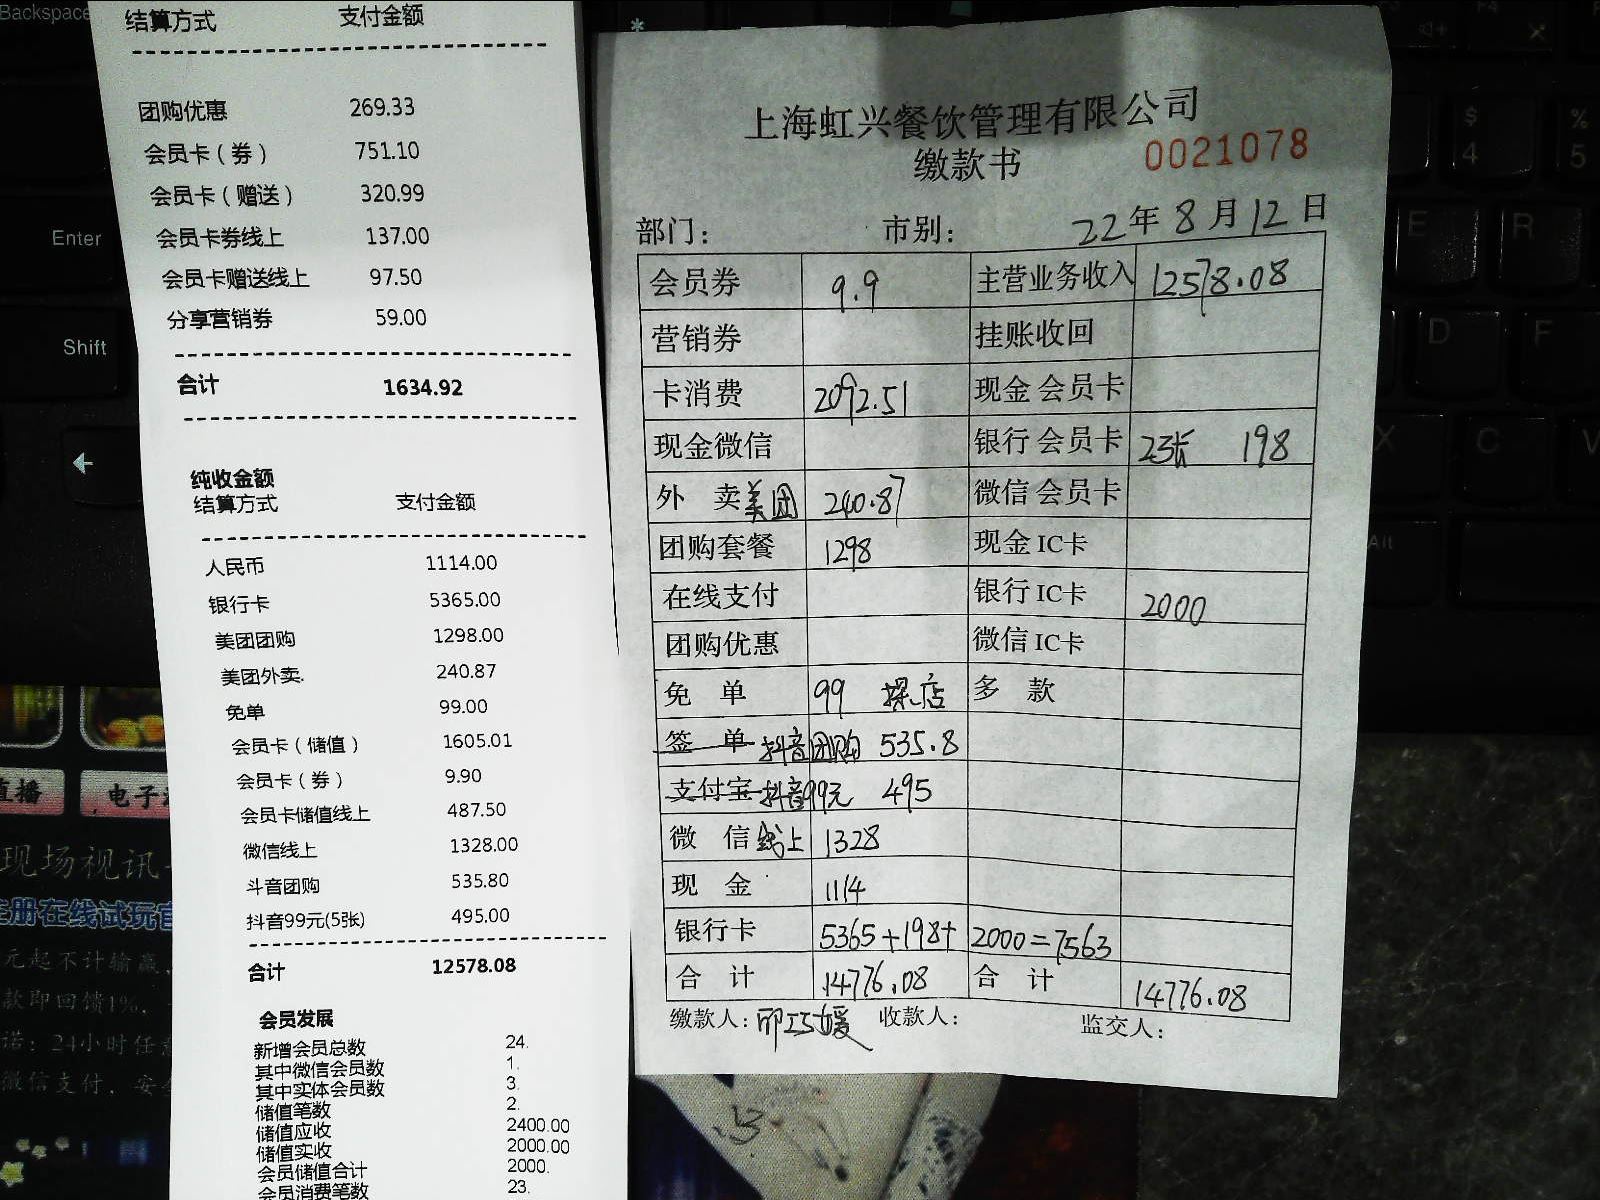 Backspace
Enter
Shift
结算方式 支付金额
团购优惠 269.33
会员卡（券） 751.10
会员卡（赠送） 320.99
会员卡券线上 137.00
会员卡赠送线上 97.50
分享营销券 59.00
合计 1634.92
纯收金额
结算方式 支付金额
人民币 1114.00
银行卡 5365.00
美团团购 1298.00
美团外卖. 240.87
免单 99.00
会员卡（储值） 1605.01
会员卡（券） 9.90
会员卡储值线上 487.50
微信线上 1328.00
斗音团购 535.80
抖音99元(5张) 495.00
合计 12578.08
会员发展
新增会员总数 24.
其中微信会员数 1.
其中实体会员数 3.
储值笔数 2.
储值应收 2400.00
储值实收 2000.00
会员储值合计 2000.
会员消费笔数 23.
上海虹兴餐饮管理有限公司
缴款书 0021078
部门： 市别： 22年8月12日
会员券 9.9 主营业务收入 12578.08
营销券 挂账收回
卡消费 2092.51 现金 会员卡
现金微信 银行 会员卡 23张 198
外 卖美团 240.87 微信 会员卡
团购套餐 1298 现金 IC卡
在线支付 银行 IC卡 2000
团购优惠 微信 IC卡
免 单 99 探店 多 款
签 单 抖音团购 535.8
支付宝 抖音99元 495
微 信线上 1328
现 金 1114
银行卡 5365+198+2000=7563
合 计 14776.08 合 计 14776.08
缴款人： 收款人： 监交人：
$
4
%
5
E
R
D
F
X
C
V
Alt
直播
电子
现场视讯
注册在线试玩官
元起不计输赢，
款即回馈1%.
诺：24小时任意
微信支付，安全